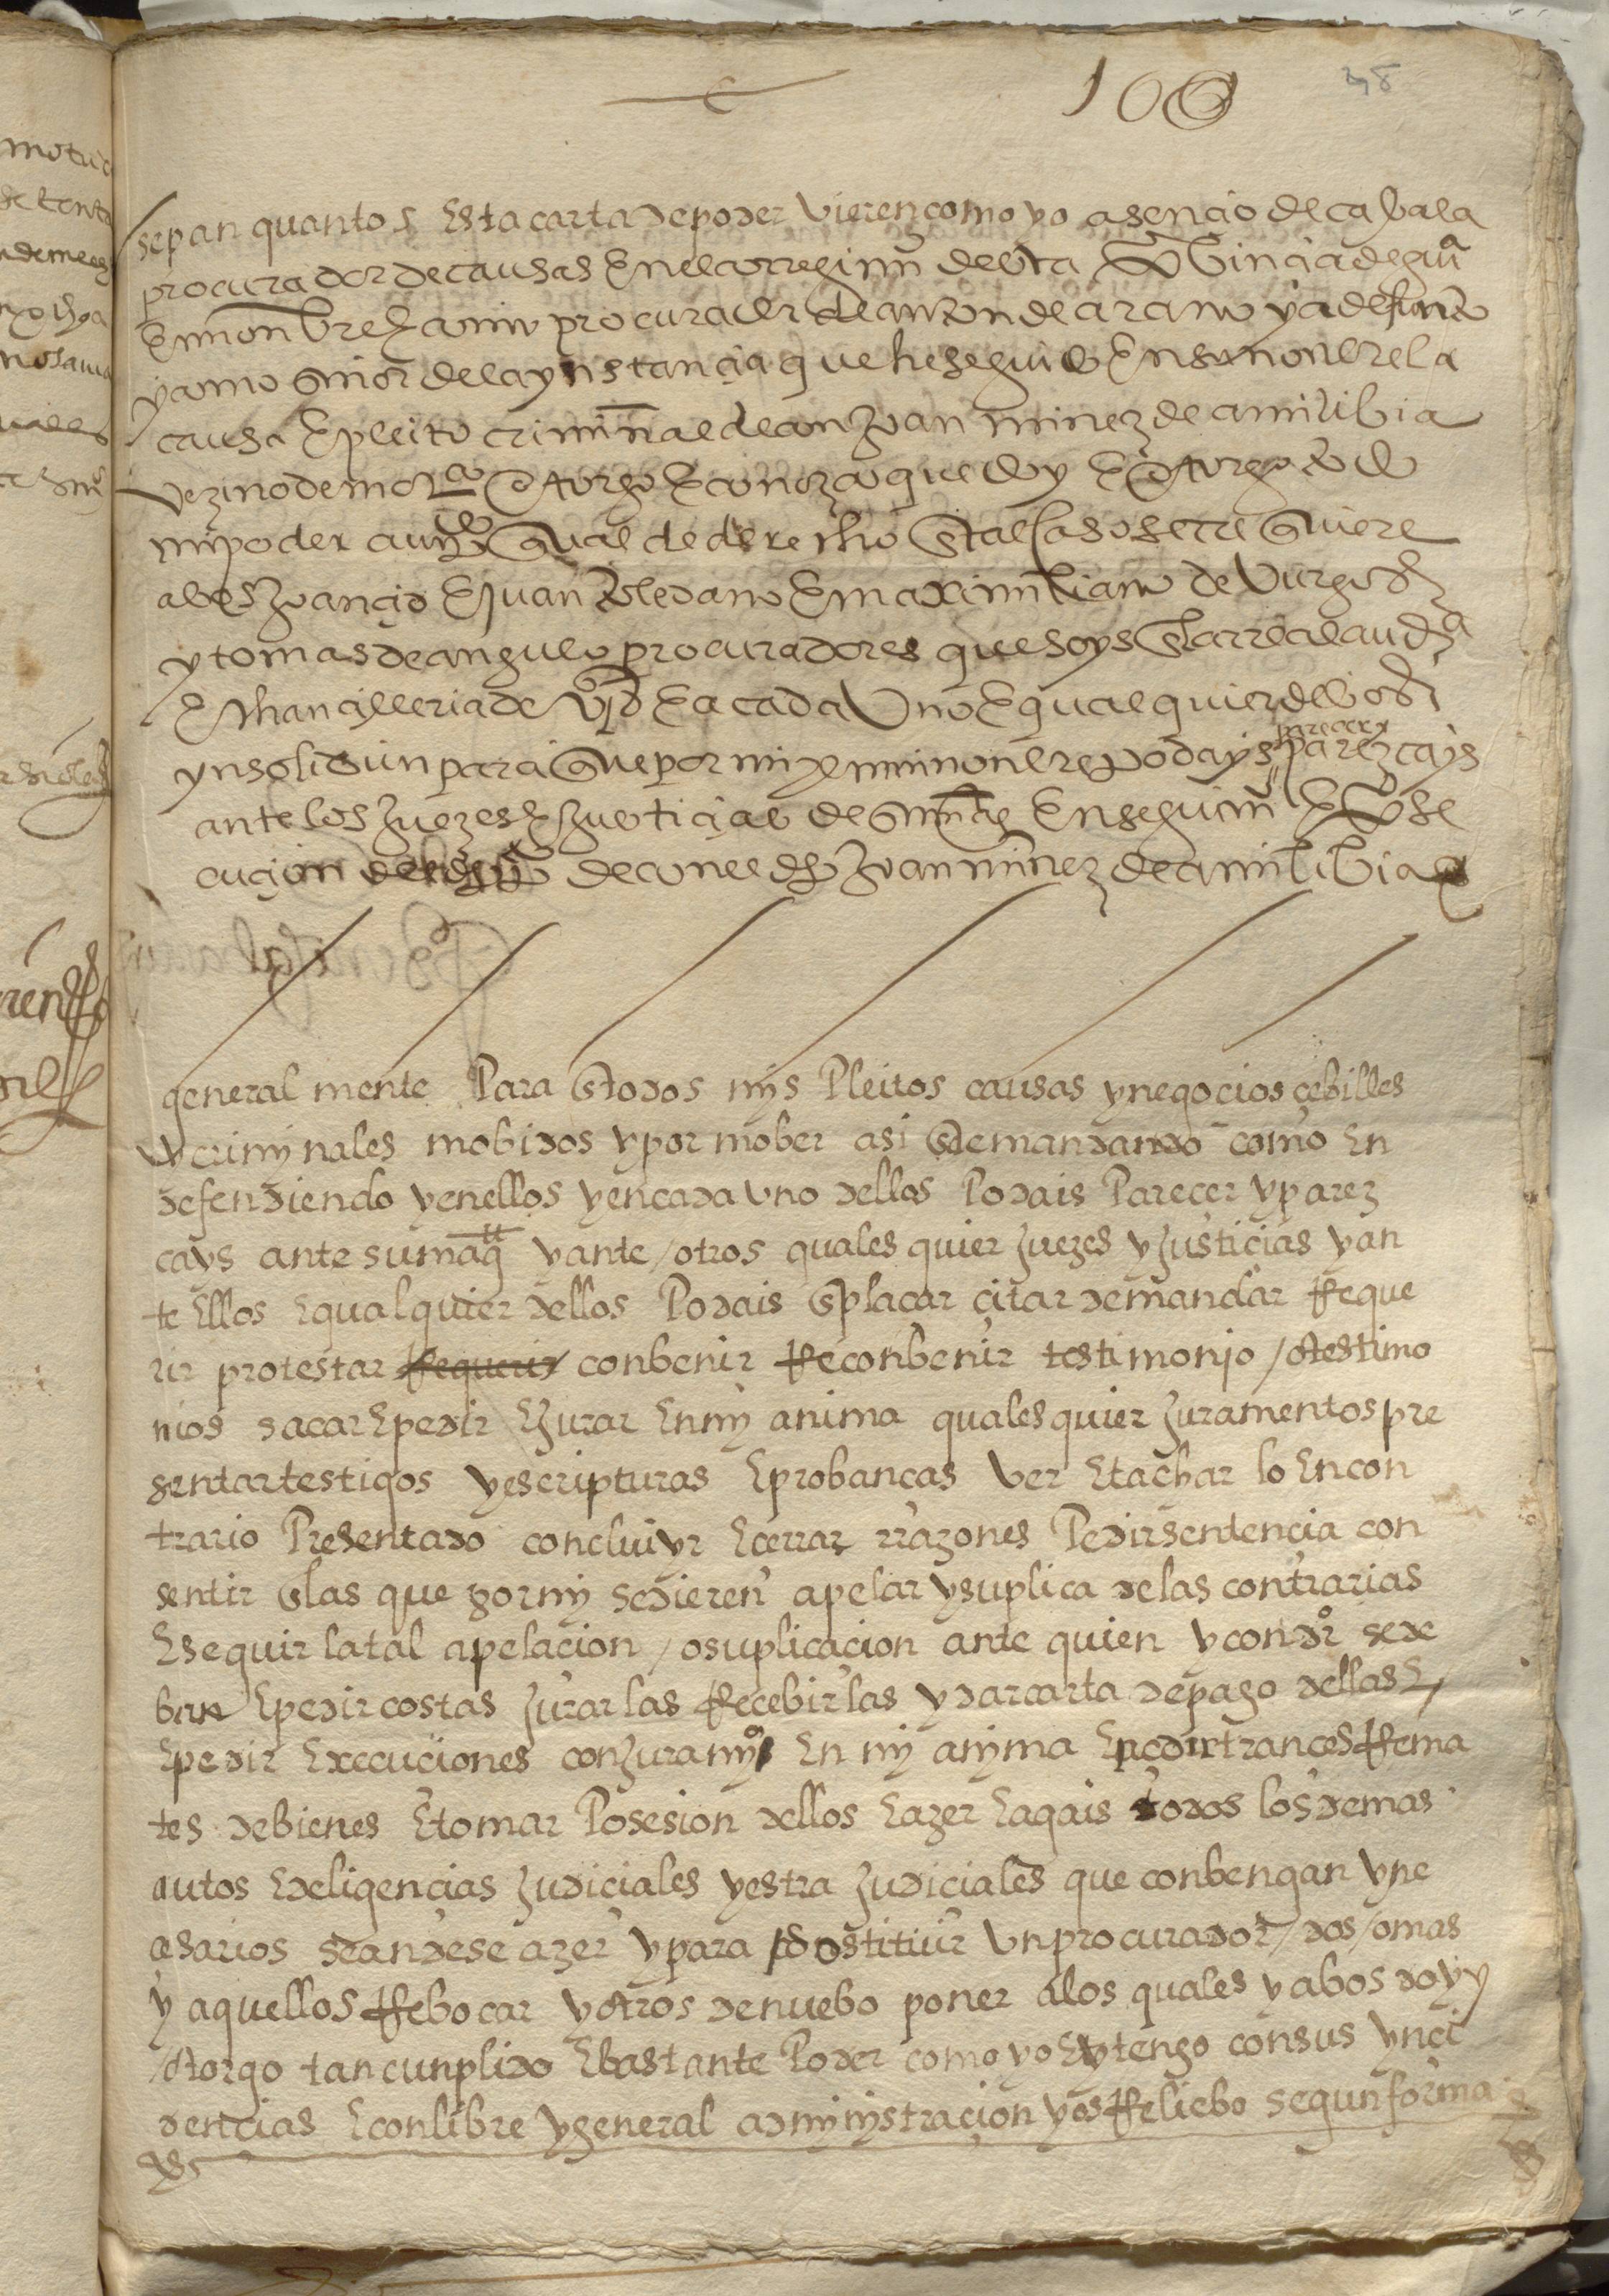 100 98
sepan quantos esta carta de poder vieren como yo asençio de çabala
procurador de causas en el corregimi° desta probinçia de guipa
en nonbre e como procurador de anton de arano ya defunto
y como señor de la ynstançia que he seguido en su nonbre la
causa e pleito criminal de con joan minez de amilibia
vezino de otorgo e conozco que doy e otorgo todo
mi poder cunplido qual de derecho en tal caso se rrequiere
a bos joan e juan toledano e maximiliano de burgos
y tomas de angulo procuradores que soys en la rreal auda
e chancilleria de vid e a cada uno e qualquier de bos
yn solidun para que por mi y en mi nonbre podays parecer y parezcays
ante los juezes e justicias de en seguimi° e prose
cuçion de con el dho joan minez de amilibia
general mente Para en todos mys Pleitos causas y negocios cebilles
y criminales mobidos y por mober asi en demandando como En
defendiendo y en ellos y en cada uno dellos Podais Parecer y parez
cays ante su magtt y ante / otros quales quier juezes y justicias y an
te Ellos e qual quier dellos Podais enplaçar çitar demandar rreque
rir protestar rrequerir conbenir rreconbenir testimonio / o testimo
nios sacar e pedir e jurar En my anima quales quier juramentos pre
sentar testigos y escripturas e probancas ver e tachar lo En con
trario Presentado concluiyr e cerrar rrazones Pedir sentencia con
sentir en las que por my se dieren apelar y suplica de las contrarias
E seguir la tal apelacion / o suplicacion ante quien y con dro se de
ban e pedir costas jurar las rrecebir las y dar carta de pago dellas e
e pedir execuciones con juramyo En my anyma e pedir trances rrema
tes de bienes e tomar Posesion dellos e azer e agais todos los demas
autos e deligencias judiciales y estra judiciales que conbengan y ne
cesarios sean de se azer y para sostituir un procurador / dos / o mas
y aquellos rrebocar y otros de nuebo poner a los quales y a bos doy y
/ otorgo tan cunplido e bastante Poder como yo e y tengo con sus ynci
dencias e con libre y general admynystracion y os rreliebo segun forma